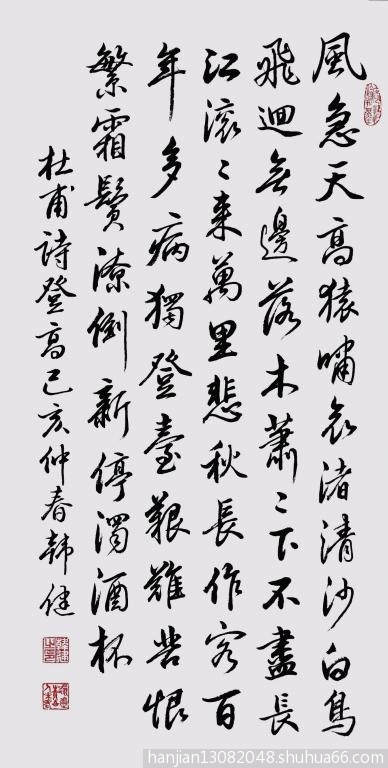 風急天高猿嘯哀渚清沙白鳥
飛迴無邊落木蕭〻下不盡長
江滚〻来萬里悲秋長作客百
年多病獨登臺艱難苦恨
繁霜鬢潦倒新停濁酒杯
杜甫詩登高己亥仲春韩健
hanjian13082048.shuhua66.com